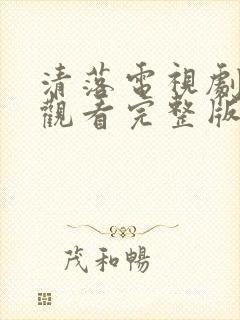 清落電視劇
觀看完整版
茂和暢